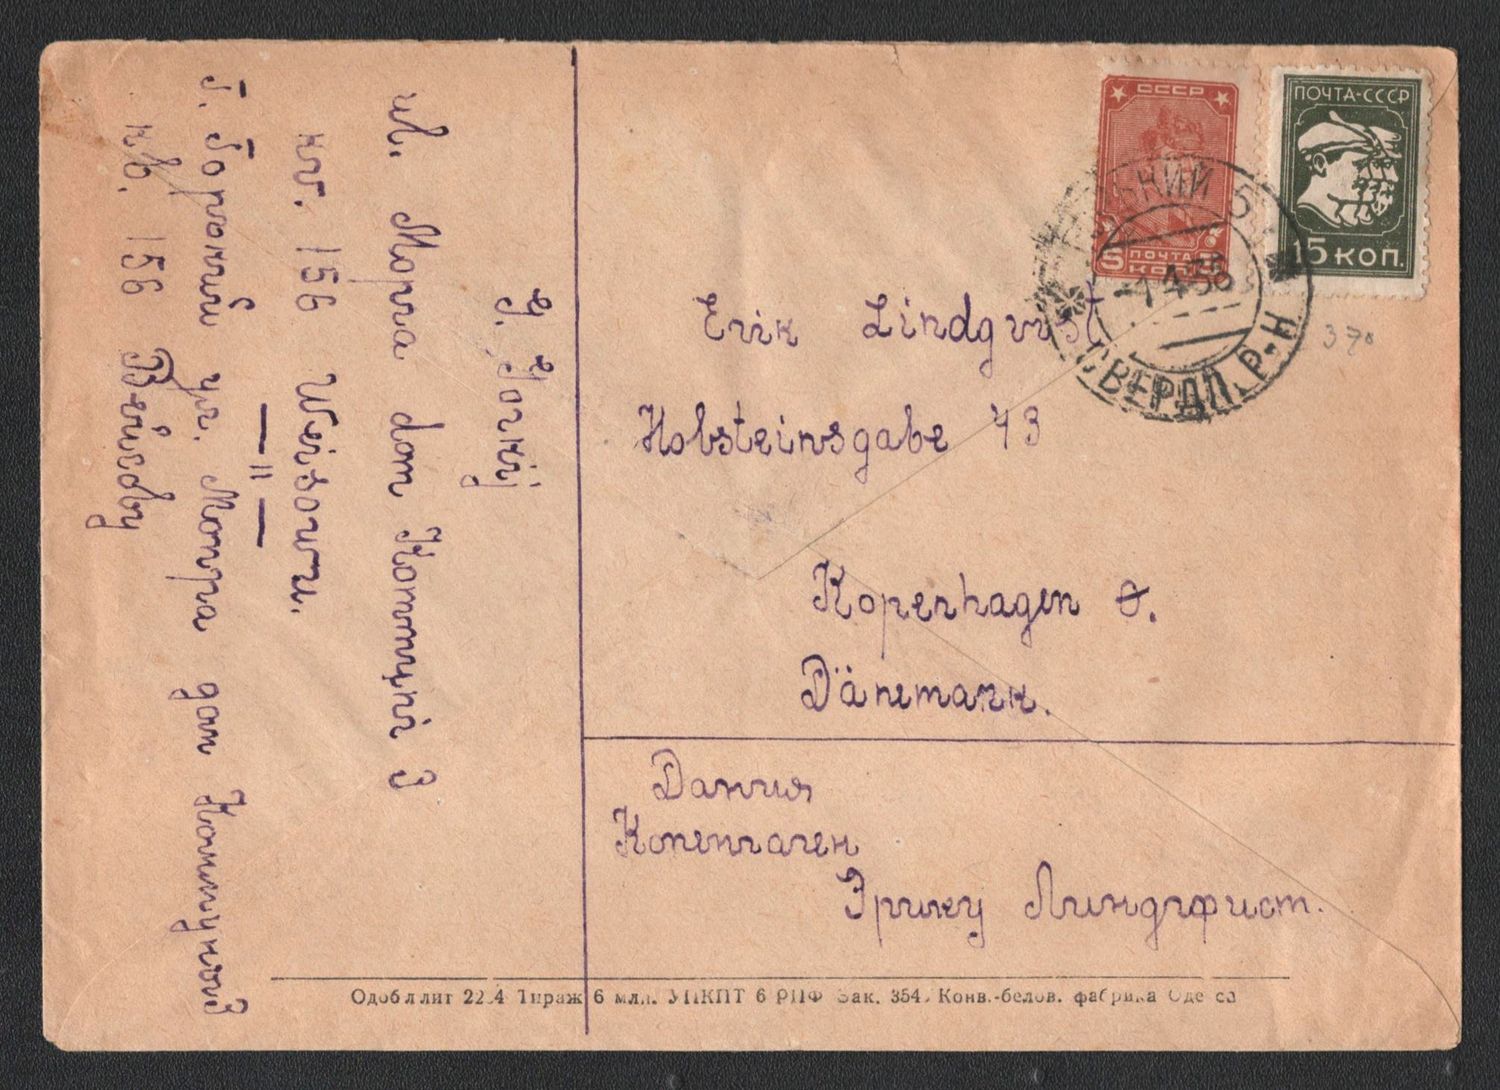 СССР
5 ПОЧТА 5
КОП
ПОЧТА-СССР
15 КОП.
-1 4 36
СВЕРДЛ. Р-Н
370
Erik Lindqvist
Holsteinsgabe 43
Kopenhagen Ø.
Dänemark.
Дания
Копенгаген
Эрику Линдгфист.
G. Gorkij
ul. Morra dom Kommuni 3
кв. 156
г. Горький ул. Мопра дом Коммуны 3
кв. 156
Одобл лит 22 4 Тираж 6 млн. УПКПТ 6 РПФ Зак. 354. Конв.-белов. фабрика Одесса